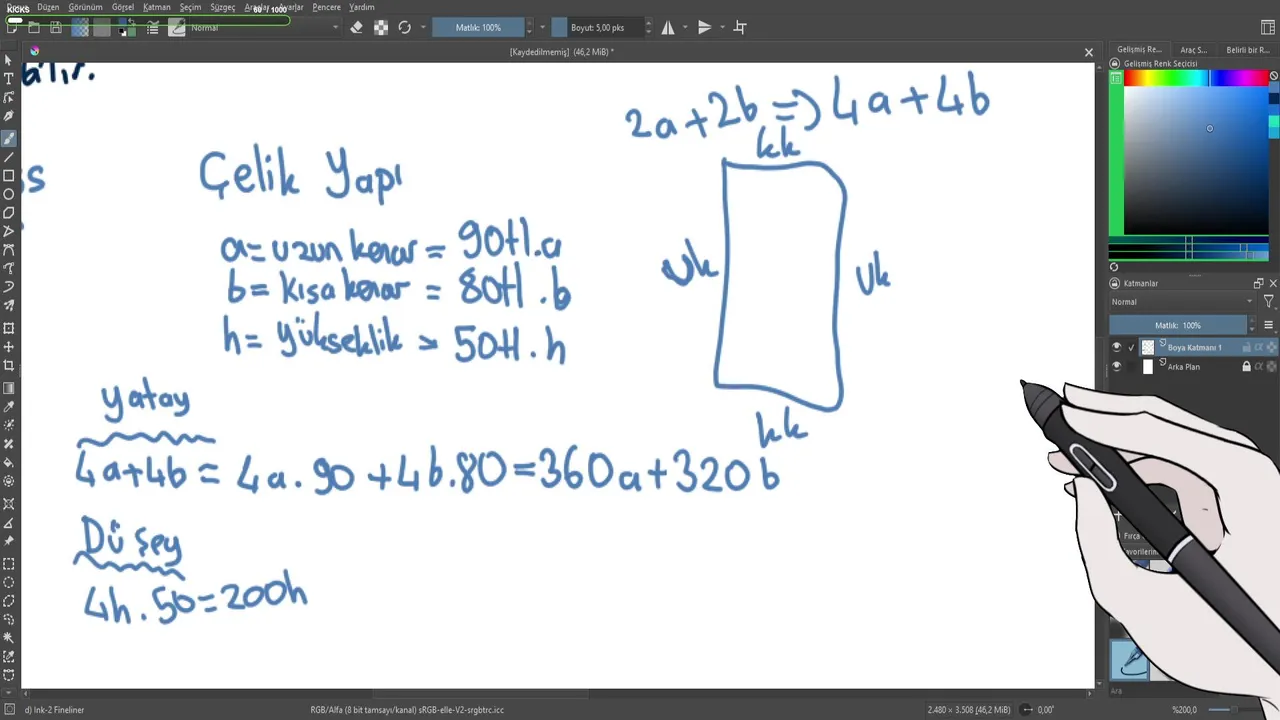 Düzen Görünüm Görsel Katman Seçim Süzgeç Ayarlar Pencere Yardım
KICKS
60 / 1000
Normal
Matlık: 100%
Boyut: 5,00 pks
[Kaydedilmemiş] (46,2 MiB) *
Gelişmiş Re... Araç S... Belirli bir R...
Gelişmiş Renk Seçicisi
2a+2b => 4a+4b
kk
Çelik Yapı
a= uzun kenar = 90tl.a
b= kısa kenar = 80tl.b
h= yükseklik = 50tl.h
uk
uk
kk
yatay
4a+4b = 4a.90+4b.80=360a+320b
Düşey
4h.50=200h
Katmanlar
Normal
Matlık: 100%
Boya Katmanı 1
Arka Plan
Fırça
Ara
d) Ink-2 Fineliner
RGB/Alfa (8 bit tamsayı/kanal) sRGB-elle-V2-srgbtrc.icc
2.480 x 3.508 (46,2 MiB)
0,00°
%200,0